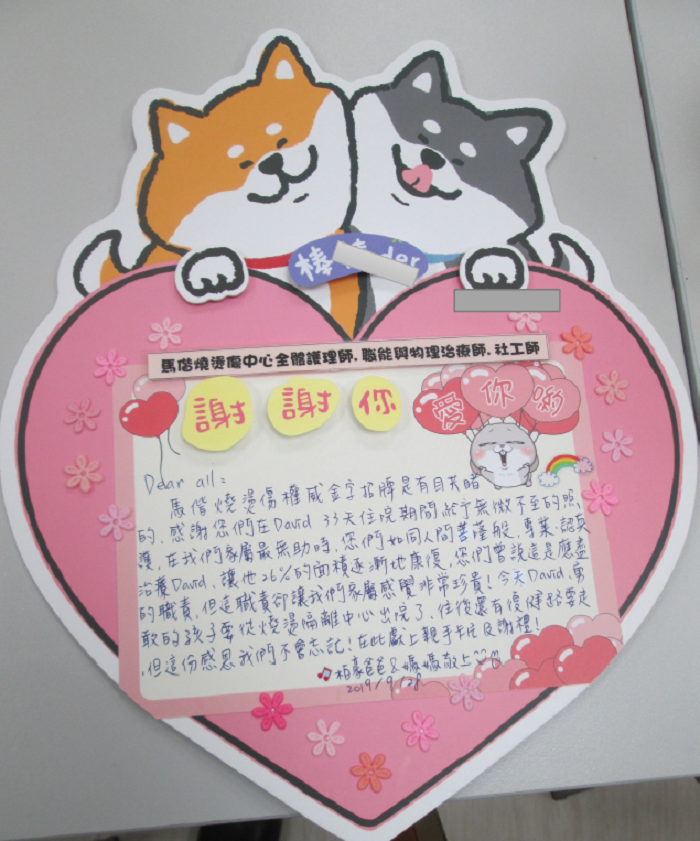 棒 der
馬偕燒燙傷中心全體護理師,職能與物理治療師、社工師
謝 謝 你
愛 你 喲
Dear all:
馬偕燒燙傷權威金字招牌是有目共睹
的,感謝您們在David 33天住院期間給予無微不至的照
護,在我們家屬最無助時,您們如同人間菩薩般,專業、認真
治療David,讓他26%的面積逐漸地康復,您們曾說這是應盡
的職責,但這職責卻讓我們家屬感覺非常珍貴!今天David,勇
敢的孩子要從燒燙隔離中心出院了,往後還有復健路要走
,但這份感恩我們不會忘記!在此獻上親手卡片及謝禮!
柏豪爸爸&媽媽敬上
2019/9/28